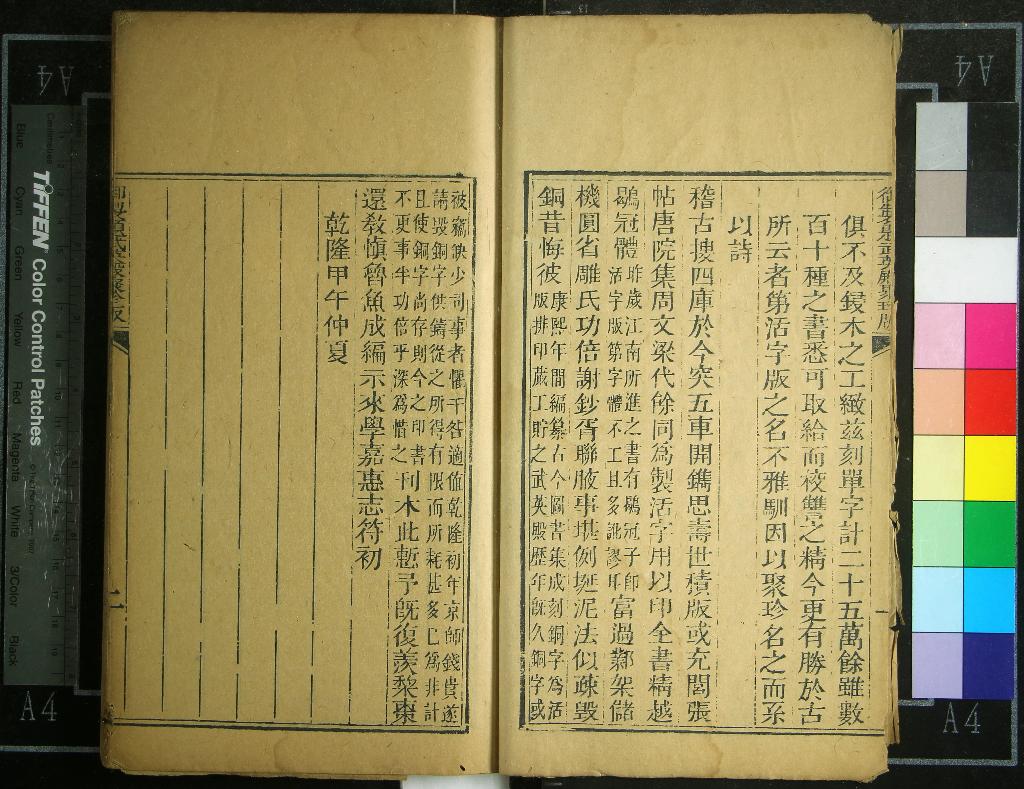 俱不及鋟木之工緻茲刻單字計二十五萬餘雖數
百十種之書悉可取給而校讐之精今更有勝於古
所云者第活字版之名不雅馴因以聚珍名之而系
以詩
稽古搜四庫於今突五車開鐫思壽世積版或充閭張
帖唐院集周文梁代餘同為製活字用以印全書精越
鶡冠體昨歲江南所進之書有鶡冠子即活字版第字體不工且多訛謬耳富過鄴架儲
機圓省雕氏功倍謝鈔胥聯腋事堪例埏泥法似疎毀
銅昔悔彼康熙年間編纂古今圖書集成刻銅字為活版排印蕆工貯之武英殿歷年既久銅字或
被竊缺少司事者懼干咎適值乾隆初年京師錢貴遂請毀銅字供鑄從之所得有限而所耗甚多已為非計
且使銅字尚存則今之印書不更事半功倍乎深為惜之刊木此慙予既復羨梨棗
還教慎魯魚成編示來學嘉惠志符初
乾隆甲午仲夏
二
TIFFEN Color Control Patches
Blue
Cyan
Green
Yellow
Red
Magenta
White
3/Color
Black
A4
A4
A4
A4